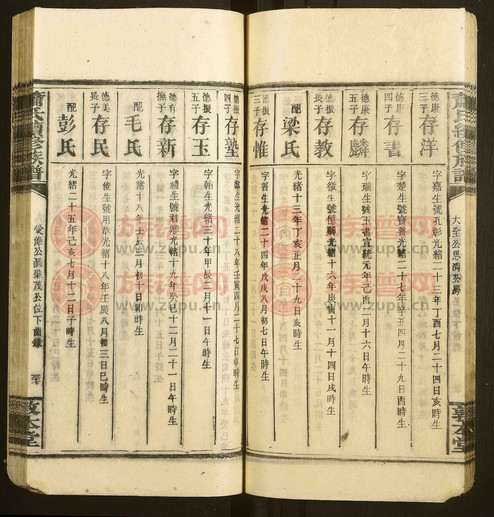 蕭氏續修族譜
敦本堂
德康長子 存洋 字嘉生號孔彰光緒二十三年丁酉七月二十三日亥時生
存書 字楚生號寶善光緒二十七年辛丑四月二十九日酉時生
德康 存麟 字瑞生號玉書宣統元年己酉二月十六日午時生
存教 字徵生號德顯光緒十六年庚寅十一月十四日戌時生
配 梁氏 光緒十三年丁亥正月二十九日亥時生
三子 存惟 字普生光緒二十四年戊戌八月初七日午時生
德振四子 存塾 光緒二十八年壬寅四月二十七日申時生
德振五子 存玉 字翰生光緒三十年甲辰二月十一日午時生
德有長子 存新 字禮生號君選光緒十九年癸巳十二月二十一日午時生
配 毛氏 光緒十八年壬辰三月初十日卯時生
德美長子 存民 字後生號用放光緒十八年壬辰八月初三日巳時生
配 彭氏 光緒二十五年己亥七月十二日子時生
蕭氏續修族譜
敦本堂
族譜网
www.zupu.cn
族譜网
www.zupu.cn